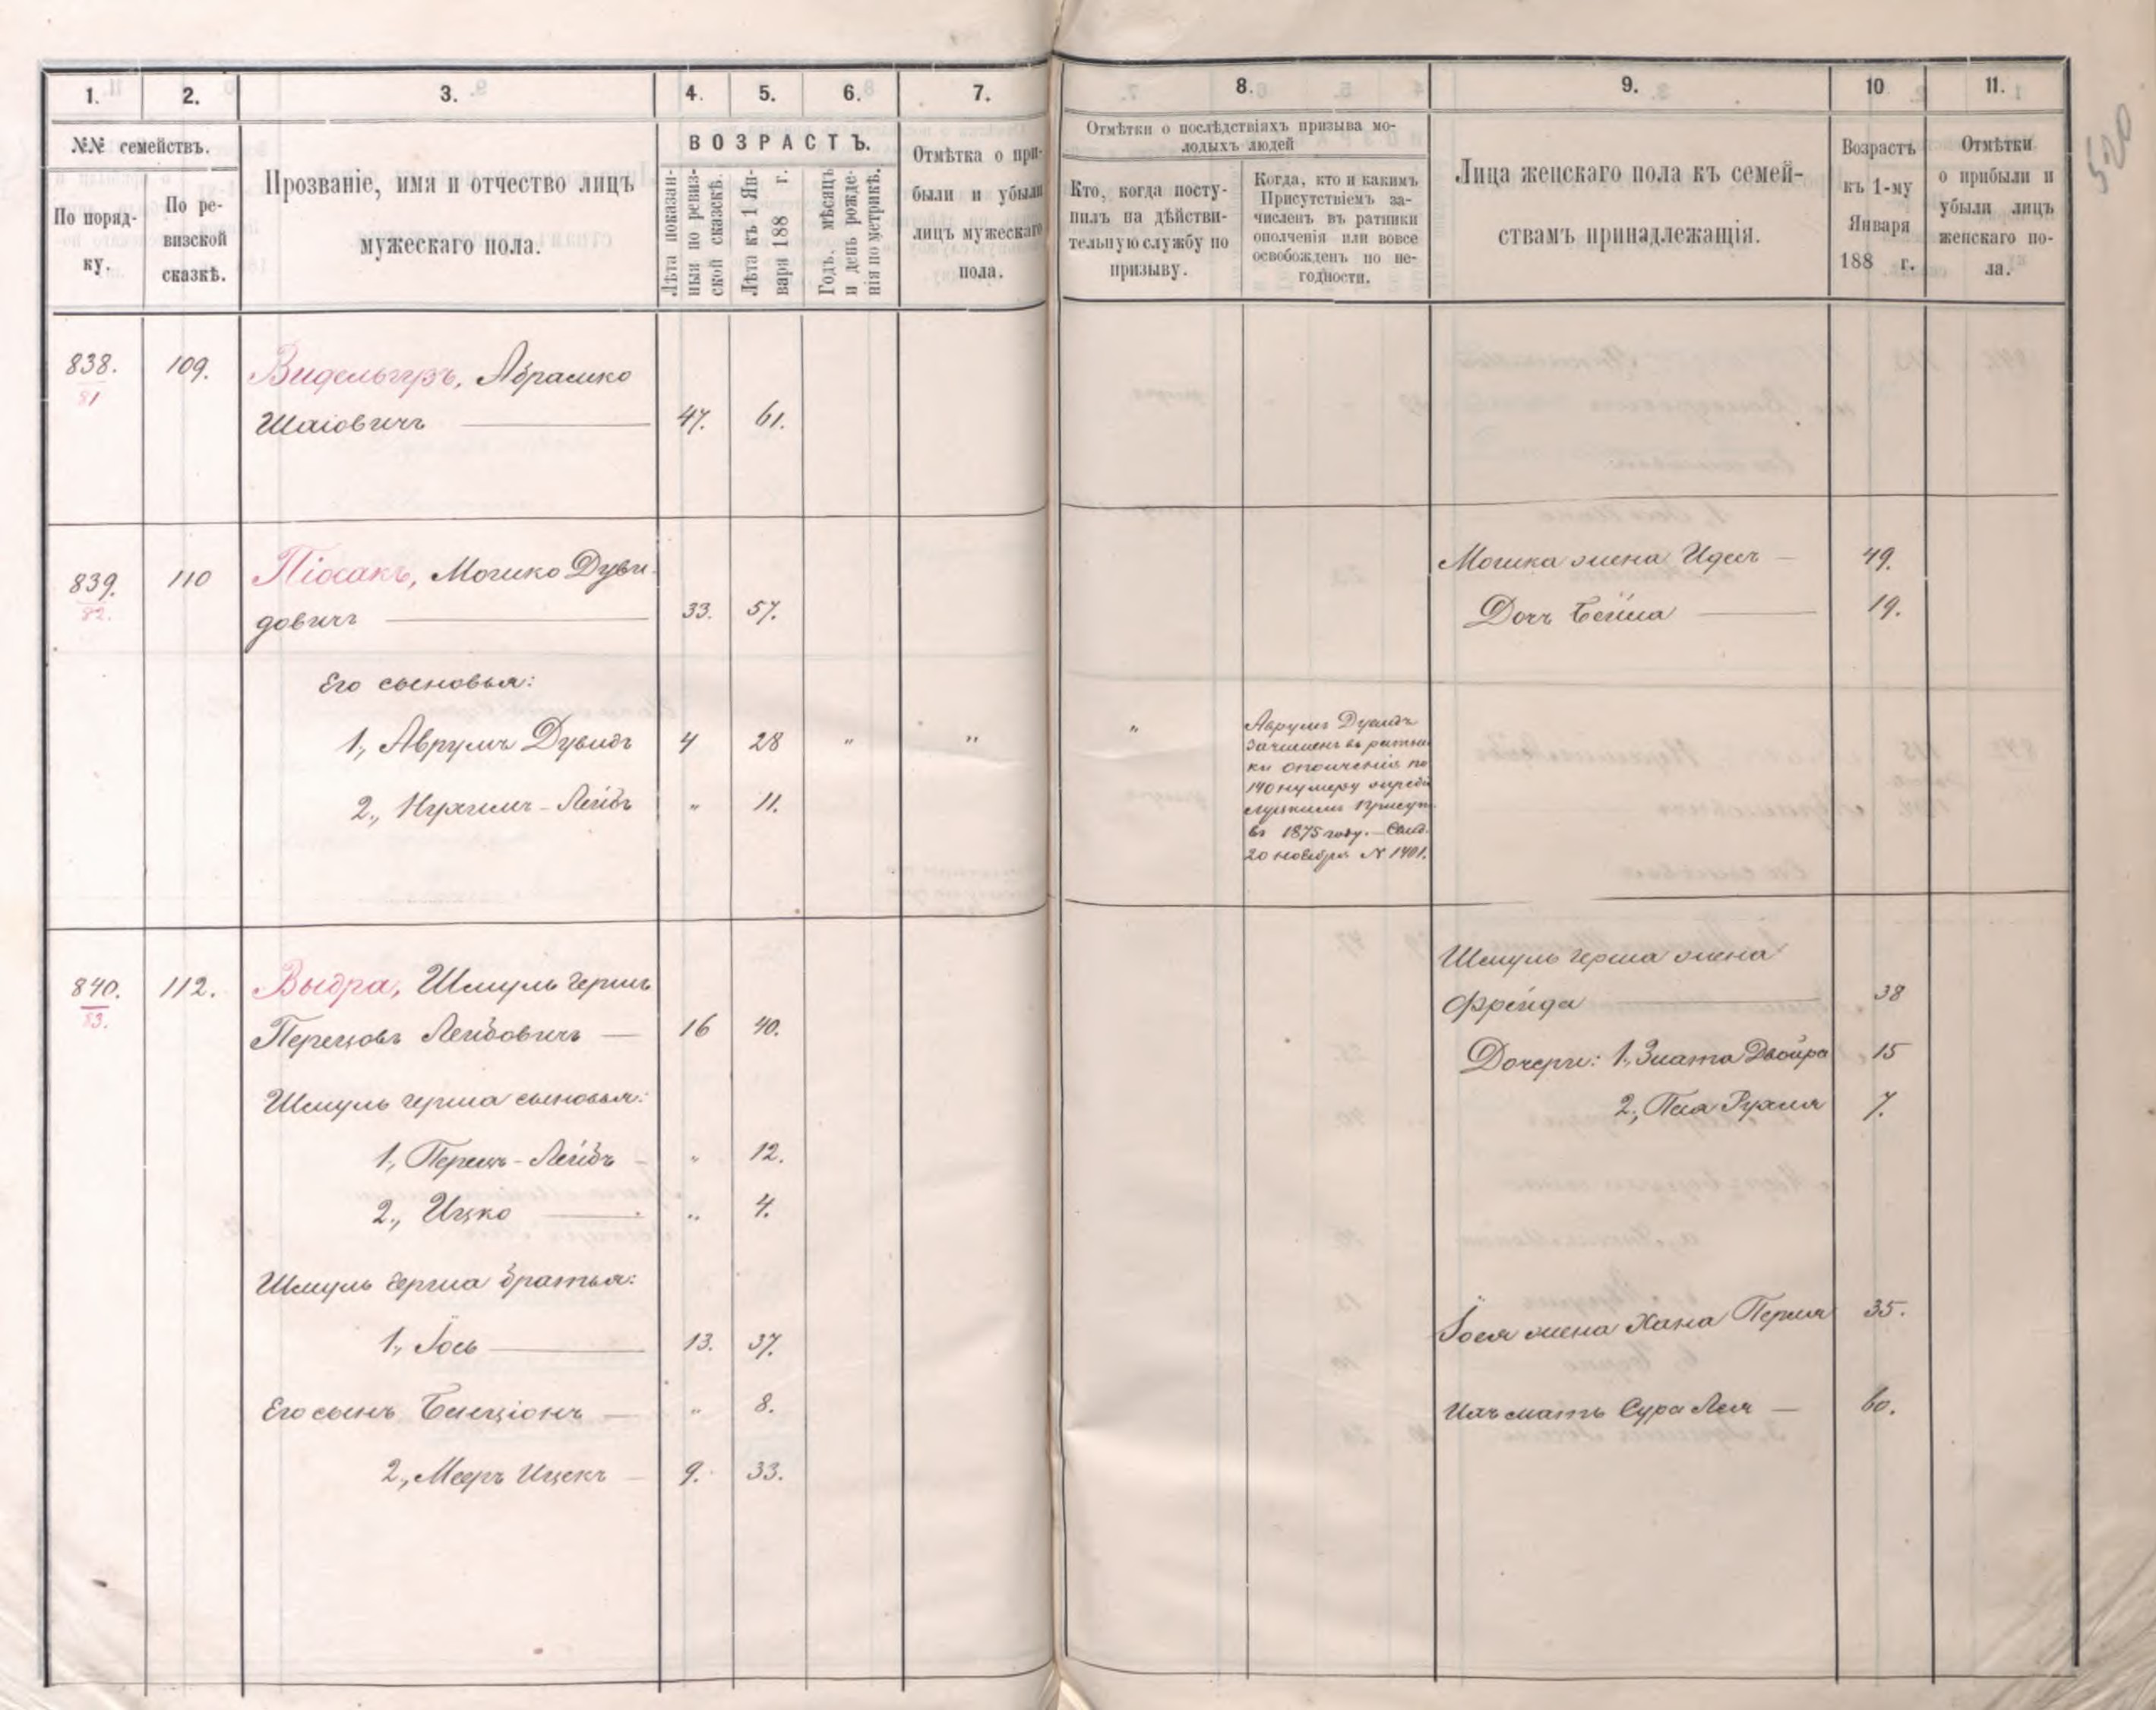 1. 2. 3. 4. 5. 6. 7.
№№ семействъ.
По поряд-
ку.
По ре-
визской
сказкѣ.
Прозваніе, имя и отчество лицъ
мужескаго пола.
ВОЗРАСТЪ.
Лѣта показан-
ныя по ревиз-
ской сказскѣ.
Лѣта къ 1 Ян-
варя 188 г.
Годъ, мѣсяцъ
и день рожде-
нія по метрикѣ.
Отмѣтка о при-
были и убыли
лицъ мужескаго
пола.
838. 109. Видельгузъ, Абрамко
81
Шаіовичъ 47. 61.
839. 110 Піосакъ, Мошко Дуви-
82.
довичъ 33. 57.
Его сыновья:
1., Аврумъ Дувидъ 4 28 " "
2., Нухимъ-Лейбъ " 11.
840. 112. Выдра, Шмуль Гершъ
83.
Перецовъ Лейбовичъ — 16 40.
Шмуль Герша сыновья:
1., Перецъ-Лейбъ - " 12.
2., Ицко " 4.
Шмуль Герша братья:
1., Іось 13. 37.
Его сынъ Бенціонъ — " 8.
2., Мееръ Ицекъ — 9. 33.
8. 9. 10 11.
Отмѣтки о послѣдствіяхъ призыва мо-
лодыхъ людей
Кто, когда посту-
пилъ на дѣйстви-
тельную службу по
призыву.
Когда, кто и какимъ
Присутствіемъ за-
численъ въ ратники
ополченія или вовсе
освобожденъ по не-
годности.
Лица женскаго пола къ семей-
ствамъ принадлежащія.
Возрастъ
къ 1-му
Января
188 г.
Отмѣтки
о прибыли и
убыли лицъ
женскаго по-
ла.
500
Мошка жена Идесъ — 49.
Дочь Бейла 19.
"
Аврумъ Дувидъ
зачисленъ въ ратни
ки ополченія по
140 нумеру жребія
Луцкимъ Присут.
въ 1875 году. — Свид.
20 ноября № 1401.
Шмуль Герша жена
Фрейда 38
Дочери: 1., Злата Двойра 15
2., Песа Рухля 7.
Іося жена Хана Перля 35.
Ихъ мать Сура Лея — 60.